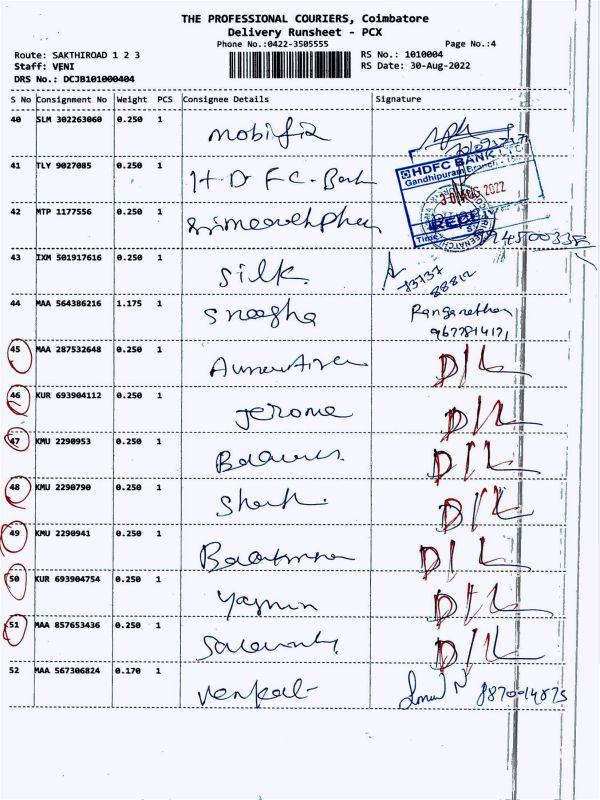 THE PROFESSIONAL COURIERS, Coimbatore
Delivery Runsheet - PCX
Phone No.:0422-3505555 Page No.:4
Route: SAKTHIROAD 1 2 3 RS No.: 1010004
Staff: VENI RS Date: 30-Aug-2022
DRS No.: DCJB101000404
S No Consignment No Weight PCS Consignee Details Signature
40 SLM 302263060 0.250 1
41 TLY 9027085 0.250 1 H D F C - Bank
HDFC BANK LTD
Gandhipuram Branch
30 AUG 2022
42 MTP 1177556 0.250 1
43 IXM 501917616 0.250 1 Silk
73737
88812
44 MAA 564386216 1.175 1 Sneegha Ranganathan
45 MAA 287532648 0.250 1 D/L
46 KUR 693904112 0.250 1 Jerome D/L
47 KMU 2290953 0.250 1 D/L
48 KMU 2290790 0.250 1 D/L
49 KMU 2290941 0.250 1 D/L
50 KUR 693904754 0.250 1 Yasmin D/L
51 MAA 857653436 0.250 1 D/L
52 MAA 567306824 0.170 1 Venkat